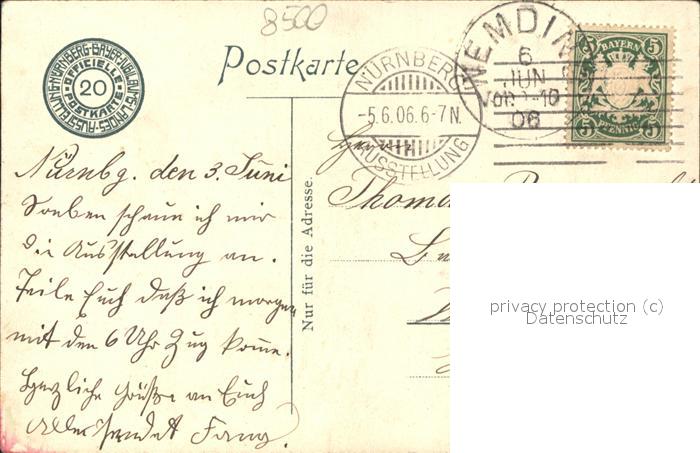 8500
NÜRNBERG-BAYER-JUBILÄUMS-LANDES-AUSSTELLUNG
OFFICIELLE
20
POSTKARTE
Postkarte
NÜRNBERG
-5.6.06.6-7N.
AUSSTELLUNG
WEMDING
6
JUN
06
BAYERN
5
5
5
5
PFENNIG
Nürnbg. den 3. Juni
Soeben schaun ich mir
die Ausstellung an.
Teile Euch daß ich morgen
mit den 6 Uhr Zug komme.
Herzliche Grüße an Euch
Alle sendet
Nur für die Adresse.
Herrn
privacy protection (c)
Datenschutz